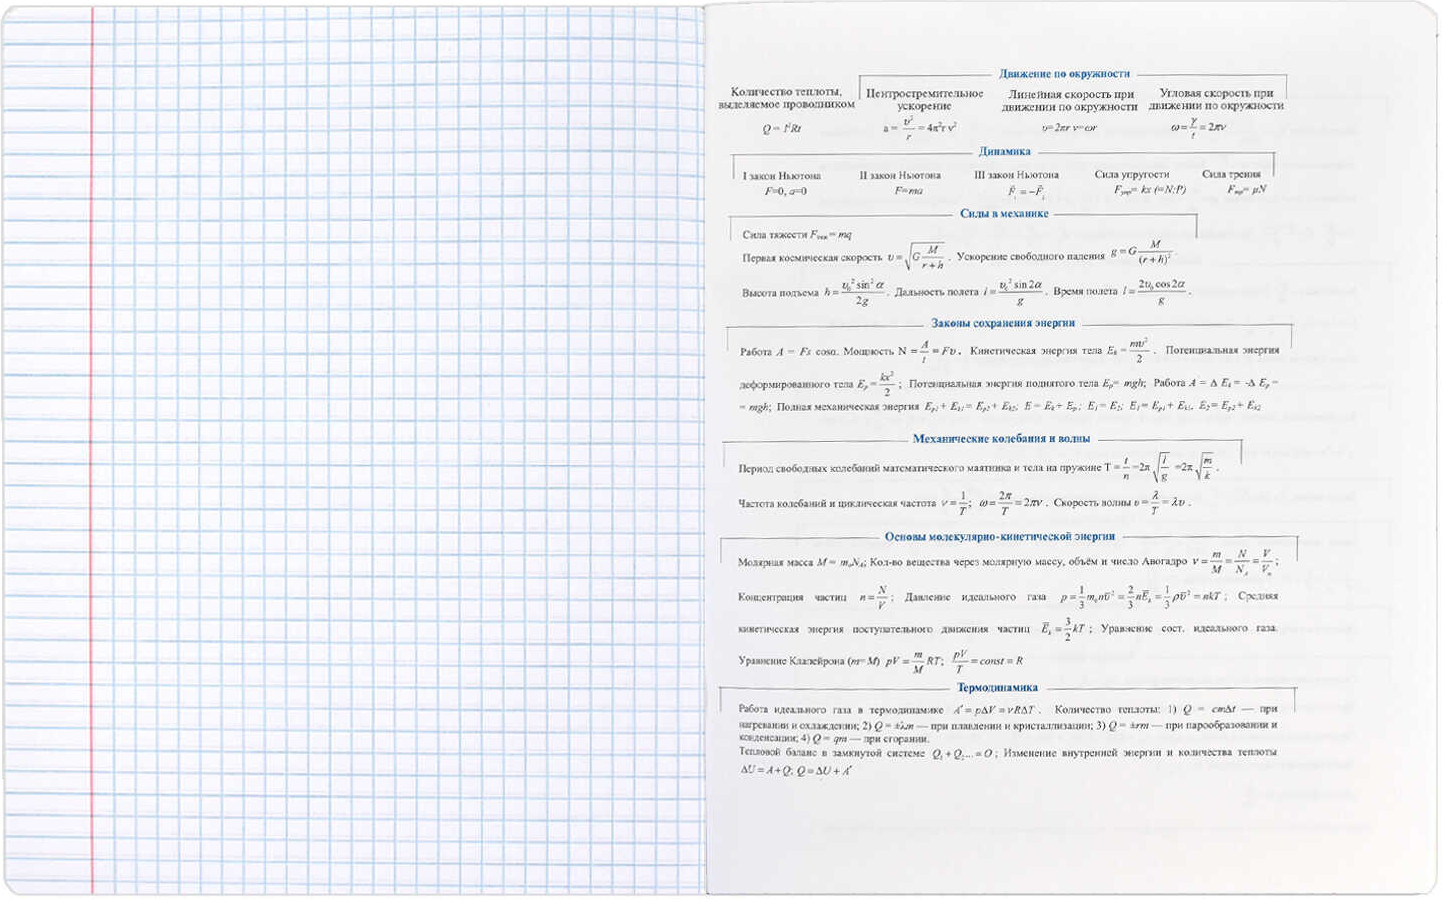 Движение по окружности
Количество теплоты, выделяемое проводником
Центростремительное ускорение
Линейная скорость при движении по окружности
Угловая скорость при движении по окружности
Q = I²Rt
a = υ²/r = 4π²r ν²
υ=2πr ν=ωr
ω = γ/t = 2πν
Динамика
I закон Ньютона
II закон Ньютона
III закон Ньютона
Сила упругости
Сила трения
F=0, a=0
F=ma
Fупр= kx (=N;P)
Fтр= μN
Силы в механике
Сила тяжести Fтяж = mq
Первая космическая скорость υ = √(G M/(r + h)) . Ускорение свободного падения g = G M/(r + h)² .
Высота подъема h = υ₀² sin² α/2g . Дальность полета i = υ₀² sin 2α/g . Время полета l = 2υ₀ cos 2α/g .
Законы сохранения энергии
Работа A = Fs cosα. Мощность N = A/t = Fυ . Кинетическая энергия тела Ek = mυ²/2 . Потенциальная энергия
деформированного тела Ep = kx²/2 ; Потенциальная энергия поднятого тела Ep= mgh; Работа A = Δ Ek = -Δ Ep =
= mgh; Полная механическая энергия Ep1 + Ek1 = Ep2 + Ek2; E = Ek + Ep; E1 = E2; E1 = Ep1 + Ek1, E2 = Ep2 + Ek2
Механические колебания и волны
Период свободных колебаний математического маятника и тела на пружине T = t/n =2π √(l/g) =2π √(m/k) .
Частота колебаний и циклическая частота ν = 1/T; ω = 2π/T = 2πν . Скорость волны υ = λ/T = λυ .
Основы молекулярно-кинетической энергии
Молярная масса M = m₀NA; Кол-во вещества через молярную массу, объём и число Авогадро ν = m/M = N/NA = V/Vm ;
Концентрация частиц n = N/V ; Давление идеального газа p = 1/3 m₀nῡ² = 2/3 nĒk = 1/3 ρῡ² = nkT ; Средняя
кинетическая энергия поступательного движения частиц Ēk = 3/2 kT ; Уравнение сост. идеального газа.
Уравнение Клапейрона (m=M) pV = m/M RT; pV/T = const = R
Термодинамика
Работа идеального газа в термодинамике A' = pΔV = νRΔT . Количество теплоты: 1) Q = cmΔt — при
нагревании и охлаждении; 2) Q = ±λm — при плавлении и кристаллизации; 3) Q = ±rm — при парообразовании и
конденсации; 4) Q = qm — при сгорании.
Тепловой баланс в замкнутой системе Q1 + Q2... = O ; Изменение внутренней энергии и количества теплоты
ΔU = A+Q; Q = ΔU + A'